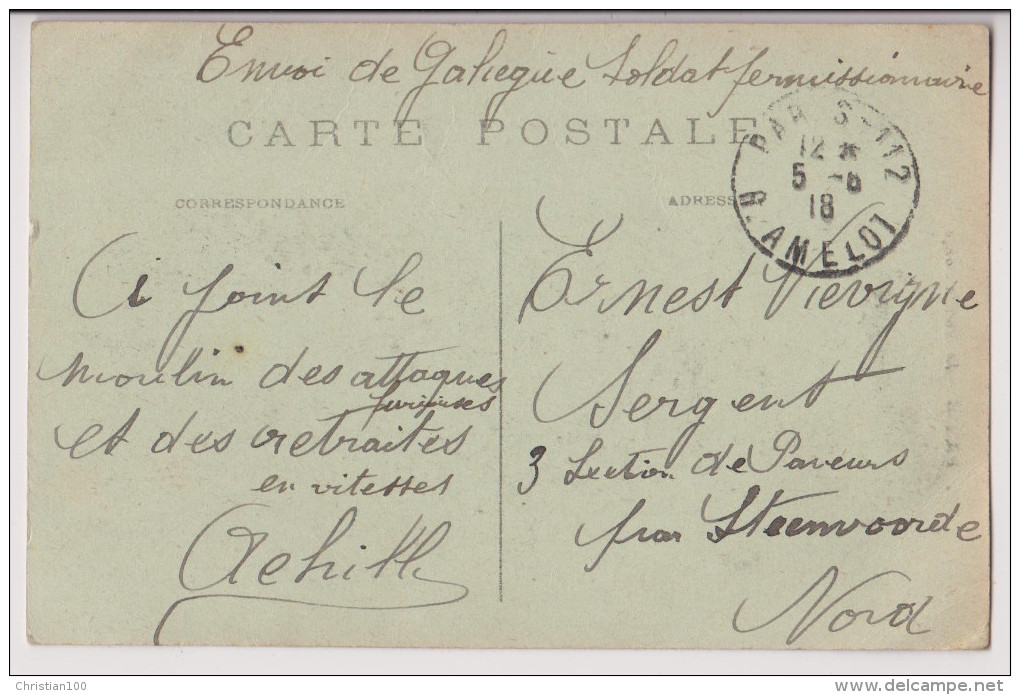 Envoi de Gahegie Soldat permissionnaire
CARTE POSTALE
CORRESPONDANCE
ADRESSE
PARIS-112
12
5 -6
18
R. AMELOT
Ci joint le
moulin des attaques
furieuses
et des retraites
en vitesses
Achille
Ernest Vievigne
Sergent
3 Section de Paveurs
par Steenvoorde
Nord
Christian100
delcampe.net